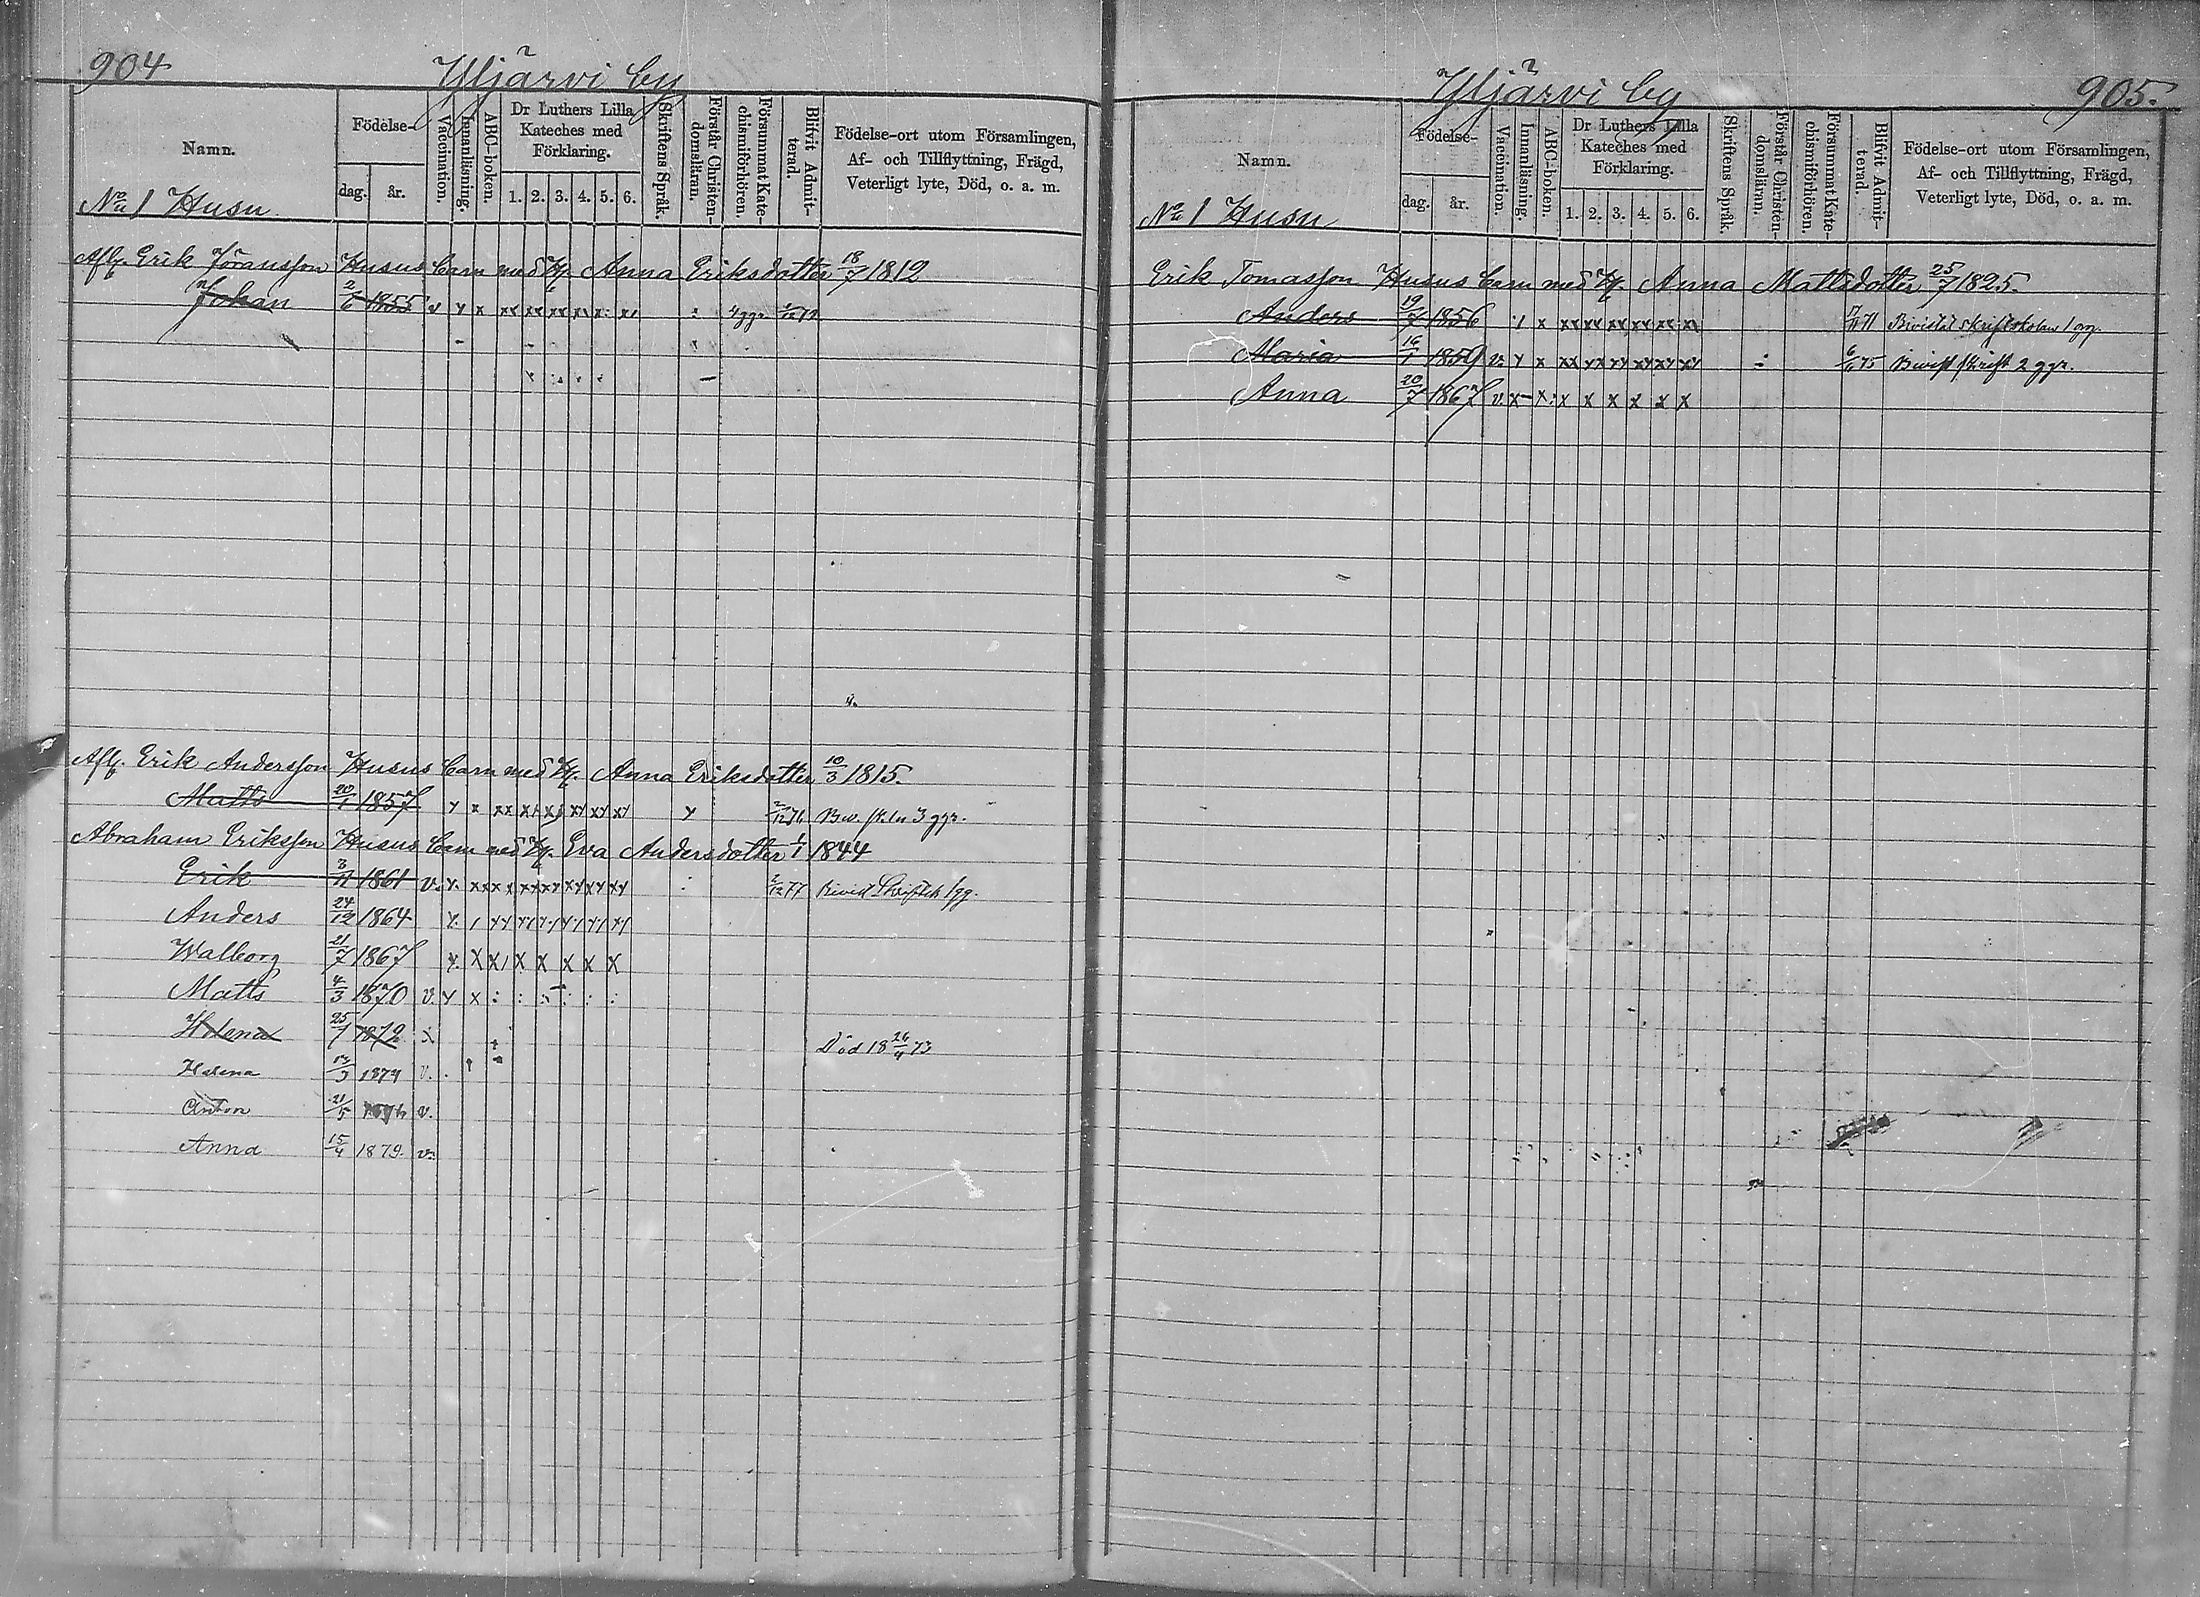 904
Yljärvi by
Namn.
Födelse-
dag.
år.
Vaccination.
Innanläsning.
ABC-boken.
Dr Luthers Lilla
Kateches med
Förklaring.
1. 2. 3. 4. 5. 6.
Skriftens Språk.
Förstår Christen-
domsläran.
Försummat Kate-
chismiförhören.
Blifvit Admit-
terad.
Födelse-ort utom Församlingen,
Af- och Tillflyttning, Frägd,
Veterligt lyte, Död, o. a. m.
No 1 Husu
Afl. Erik Jöransson Husus barn med H. Anna Eriksdotter 18/7 1812
Johan 2/6 1855 v 4 ggr
Afl. Erik Andersson Husus barn med H. Anna Eriksdotter 10/3 1815.
Matts 20/1 1857 2/12 76 3 ggr.
Abraham Eriksson Husus barn med H. Eva Andersdotter 1/1 1844
Erik 3/11 1861 v. 2/12 77
Anders 24/12 1864
Walborg 21/7 1867 X X X X X X X
Matts 4/3 1870 v.
Helena 25/7 1872 Död 18 26/4 73
Helena 1874 v.
Anton 21/5 v.
Anna 15/4 1879. v.
Yljärvi by
905.
Namn.
Födelse-
dag.
år.
Vaccination.
Innanläsning.
ABC-boken.
Dr Luthers Lilla
Kateches med
Förklaring.
1. 2. 3. 4. 5. 6.
Skriftens Språk.
Förstår Christen-
domsläran.
Försummat Kate-
chismiförhören.
Blifvit Admit-
terad.
Födelse-ort utom Församlingen,
Af- och Tillflyttning, Frägd,
Veterligt lyte, Död, o. a. m.
No 1 Husu
Erik Tomasson Husus barn med H. Anna Mattsdotter 25/7 1825.
Anders 19/7 1856 x xx xx xx xx xx xx 17/11 71 Bivistat skriftskolan 1 gg.
Maria 16/1 1859 v. 75 2 ggr.
Anna 20/7 1867 v. x x x x x x x x